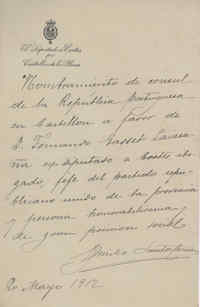 El Diputado a Cortes
por
Castellón de la Plana
Nombramiento de consul
de la República Portuguesa
en Castellon a favor de
D. Fernando Gasset Lacasa
ña ex diputado a Cortes abo
gado, jefe del partido repu
blicano unido de la provincia
y persona honorabilísima
de gran posicion social
20 Mayo 1912